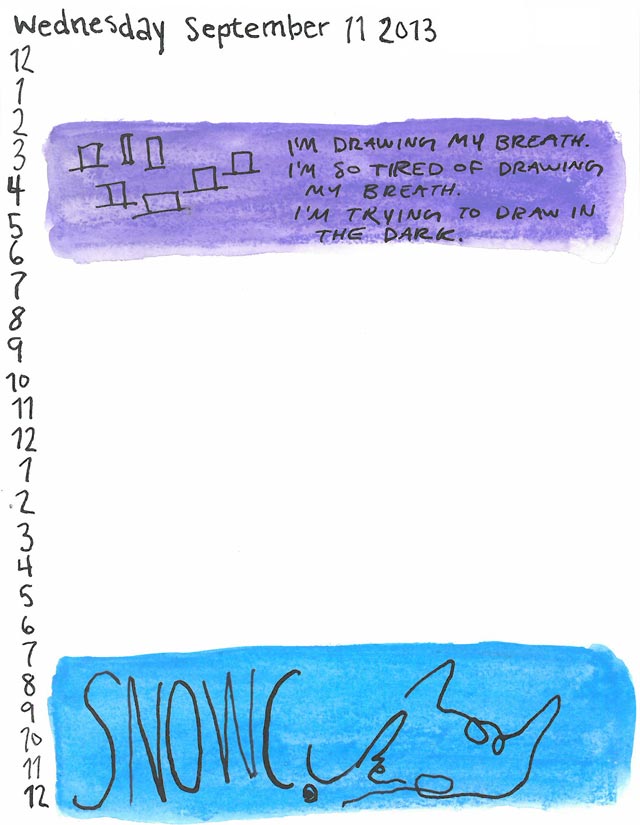 Wednesday September 11 2013
12
1
2
3
4
5
6
7
8
9
10
11
12
1
2
3
4
5
6
7
8
9
10
11
12
I'M DRAWING MY BREATH.
I'M SO TIRED OF DRAWING
MY BREATH.
I'M TRYING TO DRAW IN
THE DARK.
SNOWC.